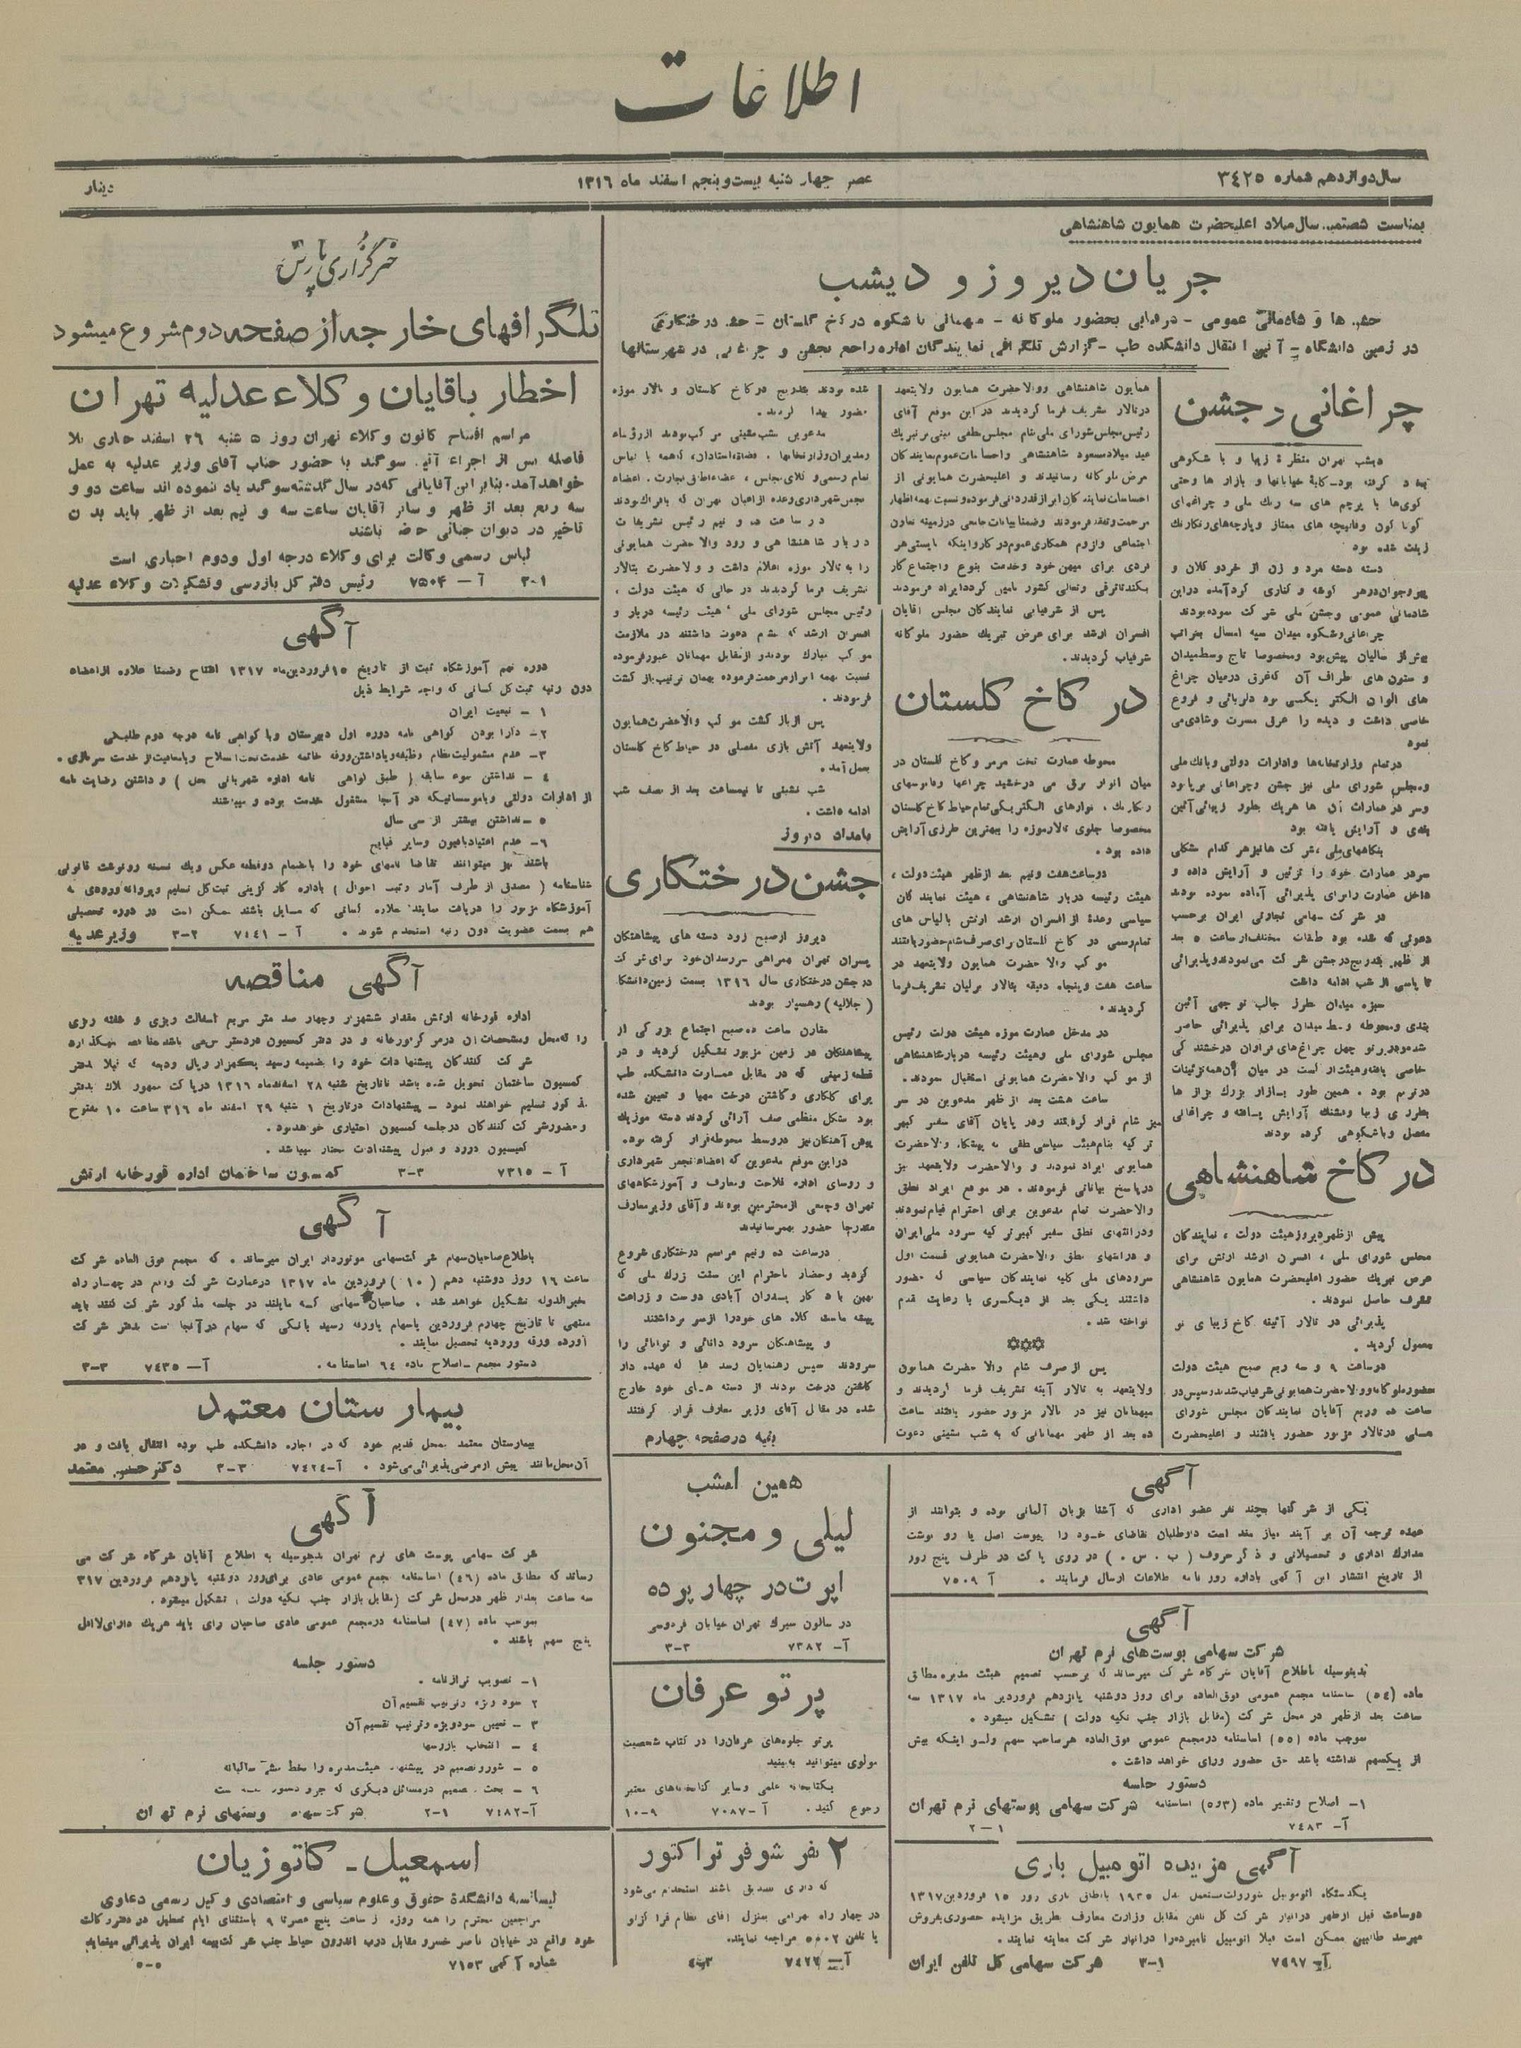 اطلاعات
سال دوازدهم شماره ۳۴۲۵
عصر چهارشنبه بیست و پنجم اسفند ماه ۱۳۱۶
دینار
بمناسبت شصتمین سال میلاد اعلیحضرت همایون شاهنشاهی
جریان دیروز و دیشب
جشن ها و شادمانی عمومی - شرفیابی بحضور ملوکانه - مهمانی باشکوه در کاخ گلستان - جشن درختکاری
در زمین دانشگاه - آئین انتقال دانشکده طب - گزارش تلگرافی نمایندگان اداره راجع بجشن و چراغانی در شهرستانها
چراغانی و جشن
دیشب تهران منظرۀ زیبا و با شکوهی
کوی‌ها با پرچم های سه رنگ ملی و چراغهای
زینت شده بود
دسته دسته مرد و زن از خرد و کلان و
شادمانی عمومی و جشن ملی شرکت نموده بودند
و ستون های طراف آن که غرق در میان چراغ
خاصی داشت و دیده را غرق مسرت و شادی می
نمود
در تمام وزارتخانه‌ها و ادارات دولتی و بانک ملی
و مجلس شورای ملی نیز جشن و چراغانی برپا بود
بندی و آرایش یافته بود
سردر عمارات خود را تزئین و آرایش داده و
داخل عمارت را برای پذیرائی آماده نموده بودند
در شرکت سهامی تجارتی ایران برحسب
تا پاسی از شب ادامه داشت
مفصل و باشکوهی کرده بودند
در کاخ شاهنشاهی
پیش از ظهر دیروز هیئت دولت ، نمایندگان
مجلس شورای ملی ، افسران ارشد ارتش برای
عرض تبریک حضور اعلیحضرت همایون شاهنشاهی
تشرف حاصل نمودند.
پذیرائی در تالار آئینه کاخ زیبای نو
معمول گردید .
در ساعت ۹ و سه ربع صبح هیئت دولت
ساعت ده و ربع آقایان نمایندگان مجلس شورای
ملی در تالار مزبور حضور یافتند و اعلیحضرت
همایون شاهنشاهی و والاحضرت همایون ولایتعهد
در تالار تشریف فرما گردیدند در این موقع آقای
رئیس مجلس شورای ملی بنام مجلس نطقی مبنی بر تبریک
عید میلاد مسعود شاهنشاهی و احساسات عموم نمایندگان
بعرض ملوکانه رسانیدند و اعلیحضرت همایونی از
اجتماعی و لزوم همکاری عموم در کار و اینکه بایستی هر
فردی برای میهن خود و خدمت بنوع و اجتماع کار
پس از شرفیابی نمایندگان مجلس آقایان
افسران ارشد برای عرض تبریک حضور ملوکانه
شرفیاب گردیدند.
در کاخ گلستان
محوطه عمارت تخت مرمر و کاخ گلستان در
میان انوار برق می درخشید چراغها و فانوسهای
رنگارنگ ، نوارهای الکتریکی تمام حیاط کاخ گلستان
مخصوصا جلوی تالار موزه را ببهترین طرزی آرایش
داده بود .
در ساعت هفت و نیم بعد از ظهر هیئت دولت ،
هیئت رئیسه دربار شاهنشاهی ، هیئت نمایندگان
سیاسی و عدۀ از افسران ارشد ارتش با لباس های
تمام رسمی در کاخ گلستان برای صرف شام حضور یافتند
موکب والاحضرت همایون ولایتعهد در
ساعت هفت و پنجاه دقیقه بتالار برلیان تشریف فرما
گردیدند.
در مدخل عمارت موزه هیئت دولت رئیس
مجلس شورای ملی و هیئت رئیسه دربار شاهنشاهی
از موکب والاحضرت همایونی استقبال نمودند.
ساعت هشت بعد از ظهر مدعوین در سر
میز شام قرار گرفتند و در پایان آقای سفیر کبیر
ترکیه بنام هیئت سیاسی نطقی به پیشگاه والاحضرت
همایونی ایراد نمودند و والاحضرت ولایتعهد نیز
در پاسخ بیاناتی فرمودند. در موقع ایراد نطق
والاحضرت تمام مدعوین برای احترام قیام نمودند
و در انتهای نطق سفیر کبیر ترکیه سرود ملی ایران
و در انتهای نطق والاحضرت همایونی قسمت اول
سرودهای ملی کلیه نمایندگان سیاسی که حضور
داشتند یکی بعد از دیگری با رعایت قدم
نواخته شد .
پس از صرف شام والاحضرت همایون
ولایتعهد به تالار آینه تشریف فرما گردیدند و
میهمانان نیز در تالار مزبور حضور یافتند ساعت
ده بعد از ظهر مهمانانی که به شب نشینی دعوت
شده بودند بتدریج در کاخ گلستان و تالار موزه
حضور پیدا کردند.
مدعوین شب نشینی مرکب بودند از رؤساء
تمام رسمی و کلای مجلس ، اعضاء اطاق تجارت ، اعضاء
انجمن شهرداری و عده از اعیان تهران که با فراک بودند
در ساعت ده و نیم رئیس تشریفات
دربار شاهنشاهی ورود والاحضرت همایونی
را به تالار موزه اعلام داشت و والاحضرت بتالار
تشریف فرما گردیدند در حالی که هیئت دولت ،
رئیس مجلس شورای ملی ، هیئت رئیسه دربار و
افسران ارشد که بشام دعوت داشتند در ملازمت
موکب مبارک بودند و از مقابل مهمانان عبور فرموده
نسبت بهمه ابراز مرحمت فرموده بهمان ترتیب بازگشت
فرمودند.
پس از بازگشت موکب والاحضرت همایون
ولایتعهد آتش بازی مفصلی در حیاط کاخ گلستان
بعمل آمد.
شب نشینی تا نیمساعت بعد از نصف شب
ادامه داشت.
بامداد دیروز
جشن درختکاری
دیروز از صبح زود دسته های پیشاهنگان
پسران تهران بهمراهی سررسدان خود برای شرکت
در جشن درختکاری سال ۱۳۱۶ بسمت زمین دانشگاه
( جلالیه ) رهسپار بودند
مقارن ساعت ده صبح اجتماع بزرگی از
پیشاهنگان در زمین مزبور تشکیل گردید و در
قطعه زمینی که در مقابل عمارت دانشکده طب
برای گلکاری و کاشتن درخت مهیا و تعیین شده
بود بشکل منظمی صف آرائی کردند دسته موزیک
پیش آهنگان نیز در وسط محوطه قرار گرفته بود.
در این موقع مدعوین که اعضاء انجمن شهرداری
و روسای اداره فلاحت و معارف و آموزشگاههای
تهران و جمعی از محترمین بودند و آقای وزیر معارف
متدرجا حضور بهمرسانیدند
در ساعت ده و نیم مراسم درختکاری شروع
گردید و حضار باحترام این سنت بزرگ ملی که
پیشه ماست کلاه های خود را از سر برداشتند
و پیشاهنگان سرود دانائی و توانائی را
سرودند سپس رهنمایان رسد ها که عهده دار
کاشتن درخت بودند از دسته های خود خارج
شده در مقابل آقای وزیر معارف قرار گرفتند
بقیه در صفحه چهارم
خبرگزاری پارس
تلگرافهای خارجه از صفحه دوم شروع میشود
اخطار بآقایان وکلاء عدلیه تهران
مراسم افتتاح کانون وکلاء تهران روز ۵ شنبه ۲۶ اسفند جاری بلا
فاصله پس از اجراء آئین سوگند با حضور جناب آقای وزیر عدلیه به عمل
خواهد آمد. بنابراین آقایانی که در سال گذشته سوگند یاد ننموده اند ساعت دو و
سه ربع بعد از ظهر و سایر آقایان ساعت سه و نیم بعد از ظهر باید بدون
تاخیر در دیوان جنائی حاضر باشند
لباس رسمی وکالت برای وکلاء درجه اول و دوم اجباری است
۳-۱ آ - ۷۵۰۴ رئیس دفتر کل بازرسی و تشکیلات وکلاء عدلیه
آگهی
دوره نهم آموزشگاه ثبت از تاریخ ۱۵ فروردین ماه ۱۳۱۷ افتتاح و ضمنا علاوه از اعضاء
دون رتبه ثبت کل کسانی که واجد شرایط ذیل
۱ - تبعیت ایران
۲- دارا بودن گواهی نامه دوره اول دبیرستان و یا گواهی نامه درجه دوم طلبگی
۴ - نداشتن سوء سابقه ( طبق گواهی نامه اداره شهربانی محل ) و داشتن رضایت نامه
از ادارات دولتی و یا موسساتیکه در آنجا مشغول خدمت بوده و میباشند
۵ - نداشتن بیشتر از سی سال
۶- عدم اعتیاد بافیون و سایر قبایح
باشند نیز میتوانند تقاضا نامهای خود را بانضمام دو قطعه عکس و یک نسخه رونوشت قانونی
شناسنامه ( مصدق از طرف آمار و ثبت احوال ) باداره کارگزینی ثبت کل تسلیم و پروانه ورودی به
آموزشگاه مزبور را دریافت نمایند. بعلاوه کسانی که مسایل باشند ممکن است در دوره تحصیلی
هم بسمت عضویت دون رتبه استخدام شوند . آ - ۷۴۴۱ ۳-۲ وزیر عدلیه
آگهی مناقصه
اداره قورخانه ارتش مقدار ششهزار و چهار صد متر مربع اسفالت ریزی و شفته ریزی
کمیسیون ساختمان تحویل شده باشد تا تاریخ شنبه ۲۸ اسفند ماه ۱۳۱۶ در پاکت ممهور لاک بدفتر
مذکور تسلیم خواهند نمود - پیشنهادات در تاریخ ۱ شنبه ۲۹ اسفند ماه ۳۱۶ ساعت ۱۰ مفتوح
و حضور شرکت کنندگان در جلسه کمیسیون اختیاری خواهد بود.
کمیسیون در رد و قبول پیشنهادات مختار میباشد .
آ - ۷۳۱۵ ۳-۳ کمیسیون ساختمان اداره قورخانه ارتش
آگهی
باطلاع صاحبان سهام شرکت سهامی موتوردار ایران میرساند . که مجمع فوق العاده شرکت
ساعت ۱۶ روز دوشنبه دهم (۱۰) فروردین ماه ۱۳۱۷ در عمارت شرکت واقع در چهار راه
مخبرالدوله تشکیل خواهد شد . صاحبان سهامی که مایلند در جلسه مذکور شرکت کنند باید
منتهی تا تاریخ چهارم فروردین یا سهام یا ورقه رسید بانکی که سهام در آنجا است بدفتر شرکت
آورده ورقه ورودیه تحصیل نمایند .
دستور مجمع - اصلاح ماده ۶۴ اساسنامه . آ- ۷۴۳۵ ۳-۳
بیمارستان معتمد
بیمارستان معتمد بمحل قدیم خود که در اجاره دانشکده طب بوده انتقال یافت و در
آن محل مانند پیش از مرضی پذیرائی می‌شود . آ-۷۴۲۴ ۳-۳ دکتر حسین معتمد
آگهی
شرکت سهامی پوست های نرم تهران بدینوسیله به اطلاع آقایان شرکاء شرکت می
رساند که مطابق ماده (۴۶) اساسنامه مجمع عمومی عادی برای روز دوشنبه پانزدهم فروردین ۳۱۷
سه ساعت بعد از ظهر در محل شرکت (مقابل بازار جنب تکیه دولت ) تشکیل میشود .
بموجب ماده (۴۷) اساسنامه در مجمع عمومی عادی صاحبان رای باید هریک دارای لااقل
پنج سهم باشند .
دستور جلسه
۱- تصویب ترازنامه .
۲ سود ویژه و ترتیب تقسیم آن
۳ - تعیین سود ویژه و ترتیب تقسیم آن
۴ - انتخاب بازرسها
آ-۷۴۸۲ ۲-۱ شرکت سهامی پوستهای نرم تهران
اسمعیل - کاتوزیان
لیسانسیه دانشکدۀ حقوق و علوم سیاسی و اقتصادی وکیل رسمی دعاوی
مراجعین محترم را همه روزه از ساعت پنج عصر تا ۹ باستثنای ایام تعطیل در دفتر وکالت
خود واقع در خیابان ناصر خسرو مقابل درب اندرون حیاط جنب شرکت بیمه ایران پذیرائی مینماید
شماره آگهی ۷۱۵۳ ۵-۵
همین امشب
لیلی و مجنون
اپرت در چهار پرده
در سالون سیرک تهران خیابان فردوسی
آ- ۷۳۸۲ ۳-۳
پرتو عرفان
پرتو جلوه‌های عرفان را در کتاب شخصیت
مولوی میتوانید به بینید
بکتابخانه علمی و سایر کتابخانه‌های معتبر
رجوع کنید . آ -۷۰۸۷ ۱۰-۹
۲ نفر شوفر تراکتور
که دارای تصدیق باشند استخدام می‌شود
یا تلفن ۵۰۰۲ مراجعه نمایند.
آگهی
یکی از شرکتها بچند نفر عضو اداری که آشنا بزبان آلمانی بوده و بتوانند از
عهده ترجمه آن بر آیند نیازمند است داوطلبان تقاضای خود را بپیوست اصل یا رو نوشت
مدارک اداری و تحصیلاتی و ذکر حروف ( ب . س . ) در روی پاکت در ظرف پنج روز
از تاریخ انتشار این آگهی باداره روزنامه اطلاعات ارسال فرمایند . آ ۷۵۰۹
آگهی
شرکت سهامی پوست‌های نرم تهران
بدینوسیله باطلاع آقایان شرکاء شرکت میرساند که برحسب تصمیم هیئت مدیره مطابق
ماده (۵۴) اساسنامه مجمع عمومی فوق العاده برای روز دوشنبه پانزدهم فروردین ماه ۱۳۱۷ سه
ساعت بعد از ظهر در محل شرکت (مقابل بازار جنب تکیه دولت ) تشکیل میشود .
بموجب ماده (۵۵) اساسنامه در مجمع عمومی فوق العاده هر صاحب سهم ولو اینکه بیش
از یکسهم نداشته باشد حق حضور و رای خواهد داشت .
دستور جلسه
۱- اصلاح و تغییر ماده (۳و۵) اساسنامه شرکت سهامی پوستهای نرم تهران
آ- ۷۴۸۳ ۲-۱
آگهی مزایده اتومبیل باری
یکدستگاه اتومبیل شورولت مستعمل مدل ۱۹۳۵ با اطاق باری روز ۱۵ فروردین ۱۳۱۷
دو ساعت قبل از ظهر در انبار شرکت کل تلفن مقابل وزارت معارف بطریق مزایده حضوری بفروش
میرسد طالبین ممکن است قبلا اتومبیل نامبرده را در انبار شرکت معاینه نمایند.
آ- ۷۴۹۷ ۳-۱ شرکت سهامی کل تلفن ایران